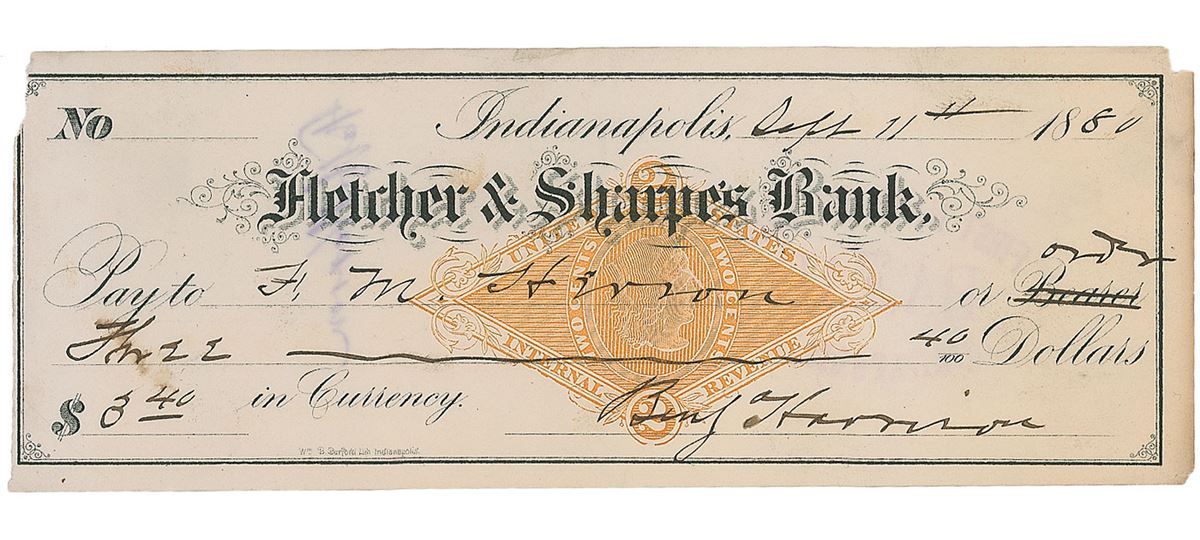 No Indianapolis, Sept 11th 1880
Fletcher & Sharpe's Bank,
order
Pay to F. M. Herron or Bearer
Three 40/100 Dollars
$ 3 40 in Currency.
Benj Harrison
UNITED STATES
TWO CENTS TWO CENTS
INTERNAL REVENUE
2
Wm. B. Burford Lith Indianapolis.